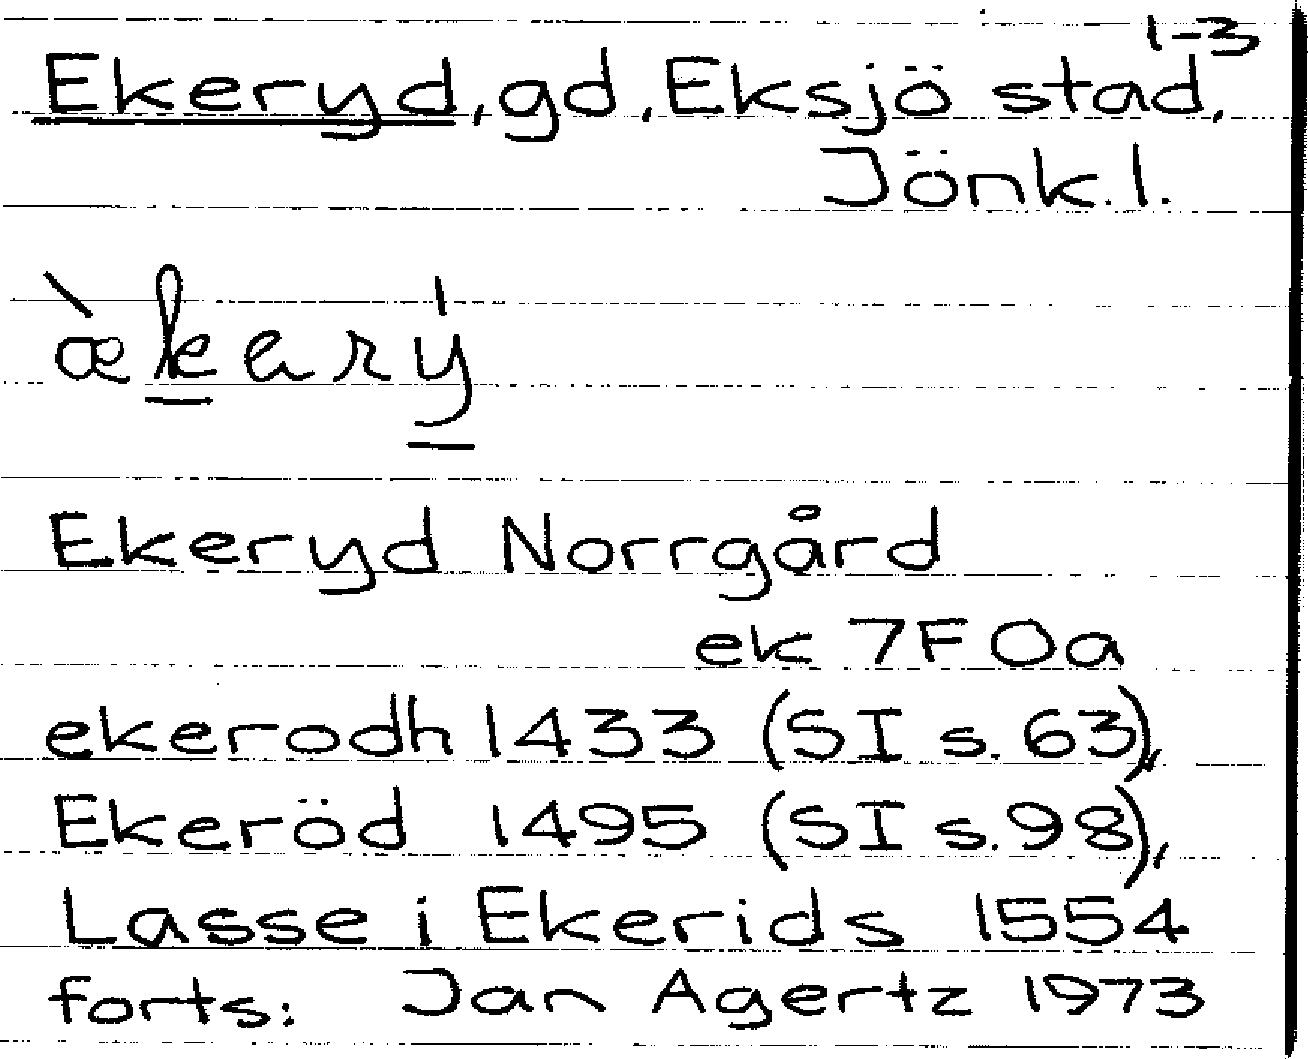 1-3
Ekeryd, gd, Eksjö stad,
Jönk. l.
æ̀karý
Ekeryd Norrgård
ek 7F 0a
ekerodh 1433 (SI s. 63),
Ekeröd 1495 (SI s. 98),
Lasse i Ekerids 1554
forts: Jan Agertz 1973